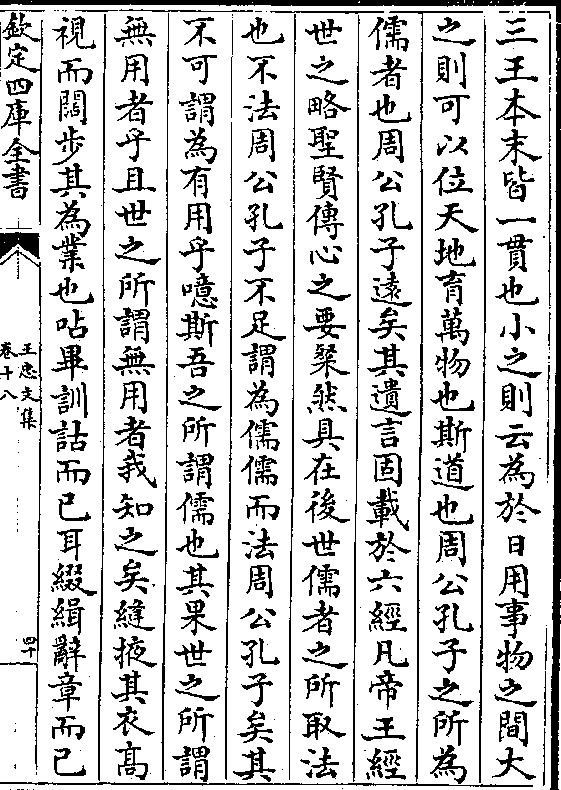 三王本末皆一貫也小之則云為於日用事物之間大
之則可以位天地育萬物也斯道也周公孔子之所為
儒者也周公孔子遠矣其遺言固載於六經凡帝王經
世之略聖賢傳心之要粲然具在後世儒者之所取法
也不法周公孔子不足謂為儒儒而法周公孔子矣其
不可謂為有用乎噫斯吾之所謂儒也其果世之所謂
無用者乎且世之所謂無用者我知之矣縫掖其衣髙
視而闊步其為業也呫畢訓詁而已耳綴緝辭章而已
欽定四庫全書
王忠文集
卷十八
四十